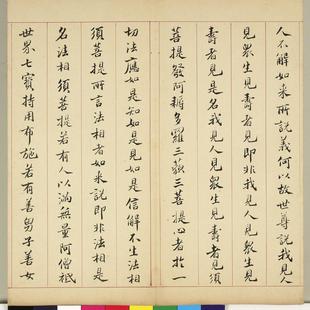 人不解如来所説義何以故世尊説我見人
見眾生見壽者見即非我見人見眾生見
壽者見是名我見人見眾生見壽者見須
菩提發阿耨多羅三藐三菩提心者於一
切法應如是知如是見如是信解不生法相
須菩提所言法相者如来說即非法相是
名法相須菩提若有人以滿無量阿僧祇
世界七寳持用布施若有善男子善女